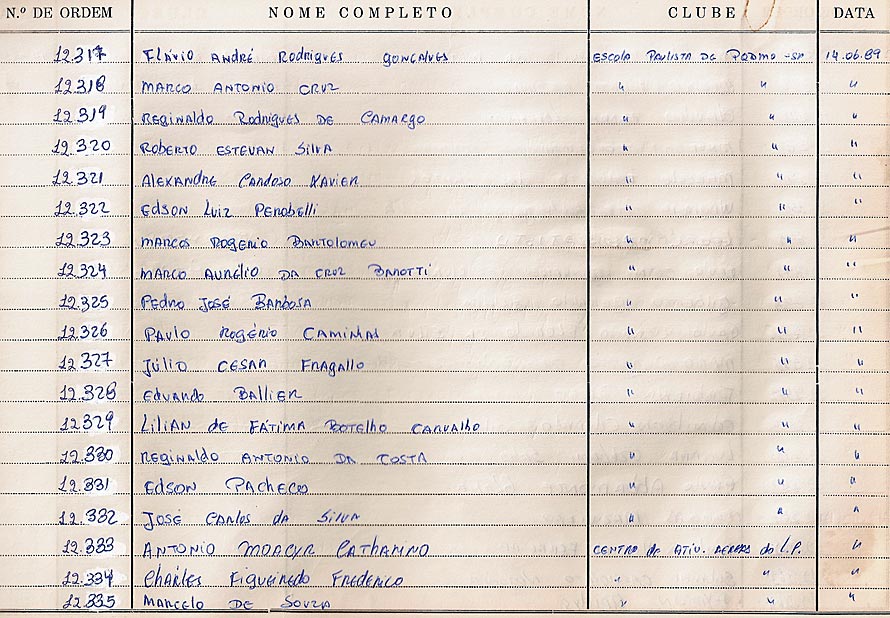 N.º DE ORDEM NOME COMPLETO CLUBE DATA
12.317 Flávio André Rodrigues Gonçalves Escola Paulista de Pqdmo -SP 14.06.89
12.318 Marco Antonio Cruz " " "
12.319 Reginaldo Rodrigues de Camargo " " "
12.320 Roberto Estevan Silva " " "
12.321 Alexandre Cardoso Xavier " " "
12.322 Edson Luiz Perobelli " " "
12.323 Marcos Rogerio Bartolomeu " " "
12.324 Marco Aurélio da Cruz Barotti " " "
12.325 Pedro José Barbosa " "
12.326 Paulo Rogério Caminha " " "
12.327 Júlio Cesar Fragallo " " "
12.328 Eduardo Ballier " " "
12.329 Lilian de Fátima Botelho Carvalho " " "
12.330 Reginaldo Antonio da Costa " " "
12.331 Edson Pacheco " " "
12.332 José Carlos da Silva " " "
12.333 Antonio Moacyr Catharino Centro de Ativ. Aereas do L.P. "
12.334 Charles Figueiredo Frederico " " "
12.335 Marcelo de Souza " " "